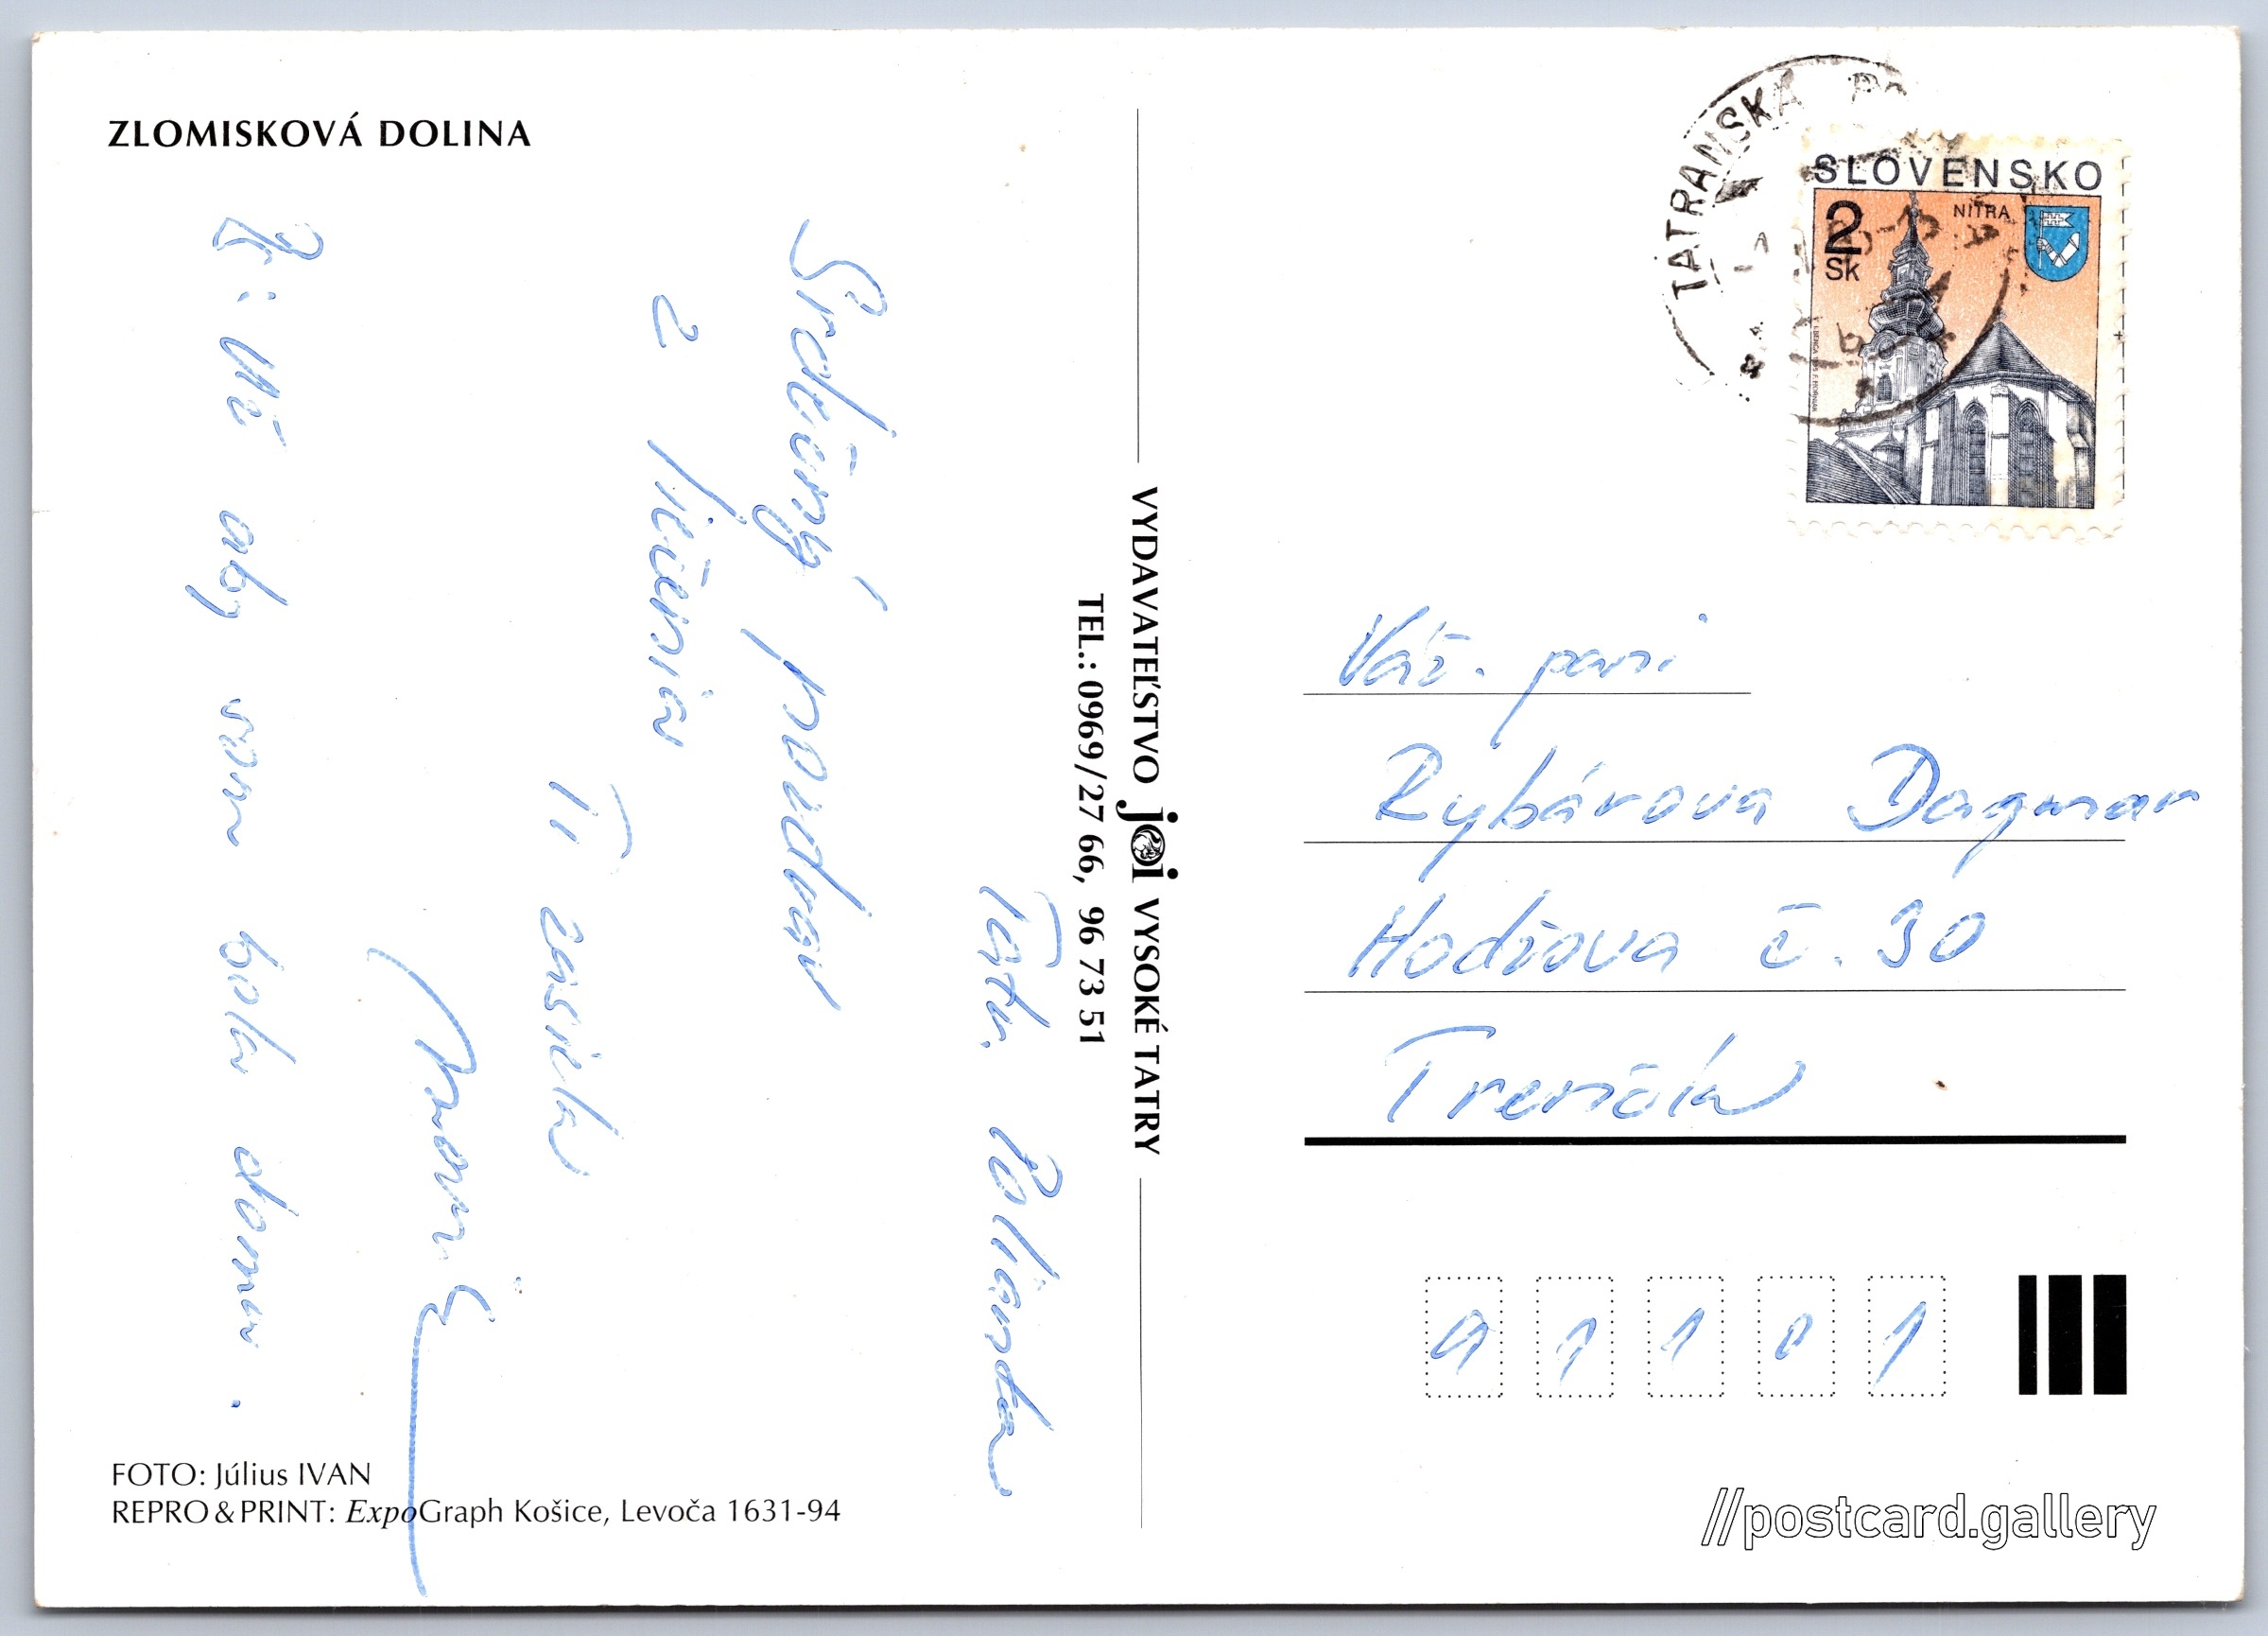 ZLOMISKOVÁ DOLINA
Tatr. Polianka
Srdečný pozdrav
z liečenia
Ti zasiela
Už aby som bola doma.
FOTO: Július IVAN
REPRO & PRINT: ExpoGraph Košice, Levoča 1631-94
VYDAVATEĽSTVO joi VYSOKÉ TATRY
TEL.: 0969/27 66, 96 73 51
TATRANSKÁ PO
SLOVENSKO
2
Sk
NITRA
Váž. pani
Rybárova Dagmar
Hodžova č. 30
Trenčín
91101
//postcard.gallery